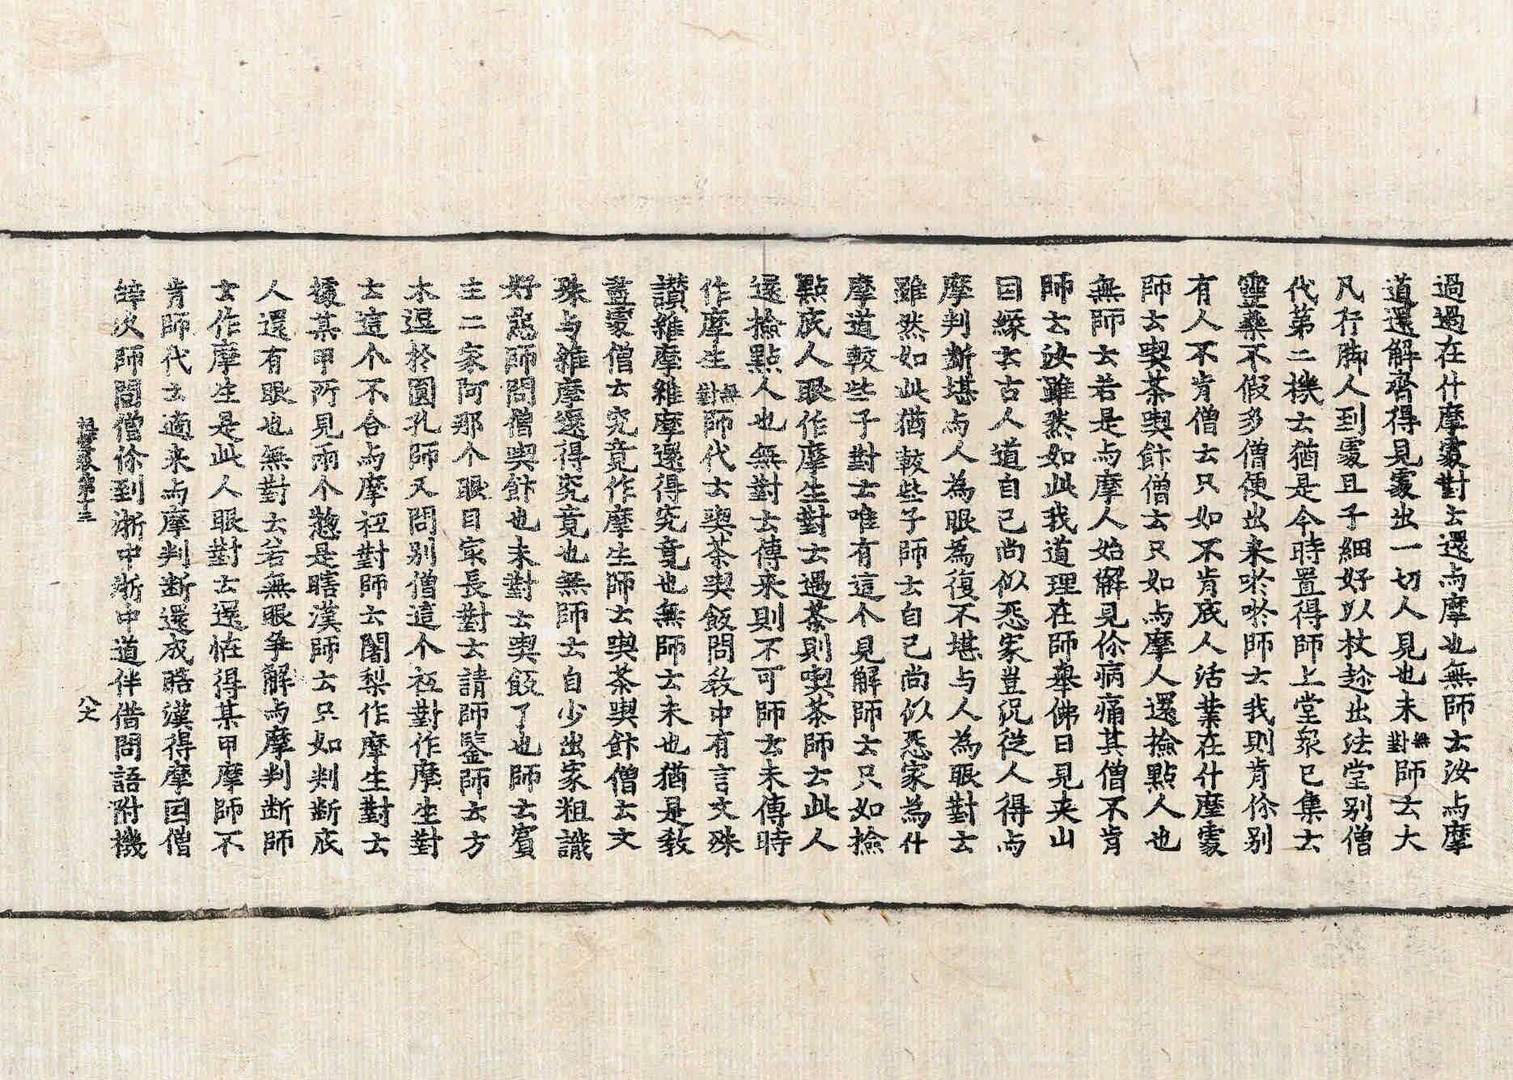 過過在什摩處對云還与摩也無師云汝与摩
道還解齋得見處出一切人見也未無對師云大
凡行脚人到處且子細好以杖趁出法堂別僧
代第二機云猶是今時置得師上堂衆已集云
靈藥不假多僧便出來吟吟師云我則肯你別
有人不肯僧云只如不肯底人活業在什摩處
師云喫茶喫飰僧云只如与摩人還撿點人也
無師云若是与摩人始解見你病痛其僧不肯
師云汝雖然如此我道理在師舉佛日見夾山
因緣云古人道自己尚似怨家豈況從人得与
摩判斷堪与人為眼為復不堪与人為眼對云
雖然如此猶較些子師云自己尚似怨家為什
摩道較些子對云唯有這个見解師云只如撿
點底人眼作摩生對云遇茶則喫茶師云此人
還撿點人也無對云傳來則不可師云未傳時
作摩生無對師代云喫茶喫飯問教中有言文殊
讚維摩維摩還得究竟也無師云未也猶是教
蓋處僧云究竟作摩生師云喫茶喫飰僧云文
殊与維摩還得究竟也無師云自少出家粗識
好惡師問僧喫飰也未對云喫飯了也師云賓
主二家阿那个眼目家長對云請師鑒師云方
木逗於圓孔師又問別僧這个祗對作摩生對
云這个不合与摩祗對師云闍梨作摩生對云
據某甲所見兩个惣是瞎漢師云只如判斷底
人還有眼也無對云若無眼爭解与摩判斷師
云作摩生是此人眼對云還恠得某甲摩師不
肯師代云適來与摩判斷還成瞎漢得摩因僧
辞次師問僧你到浙中浙中道伴借問語附機
祖堂卷第十三
八丈